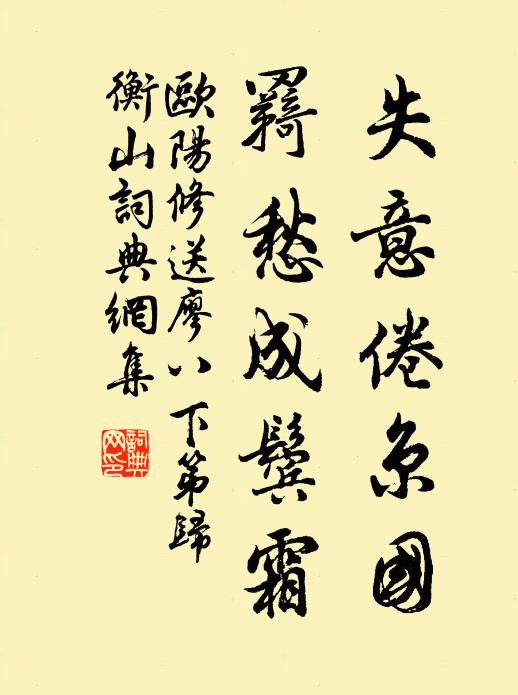 失意倦京國
羇愁成鬢霜
歐陽修送廖八下第歸
衡山詞典網集
詞典網印